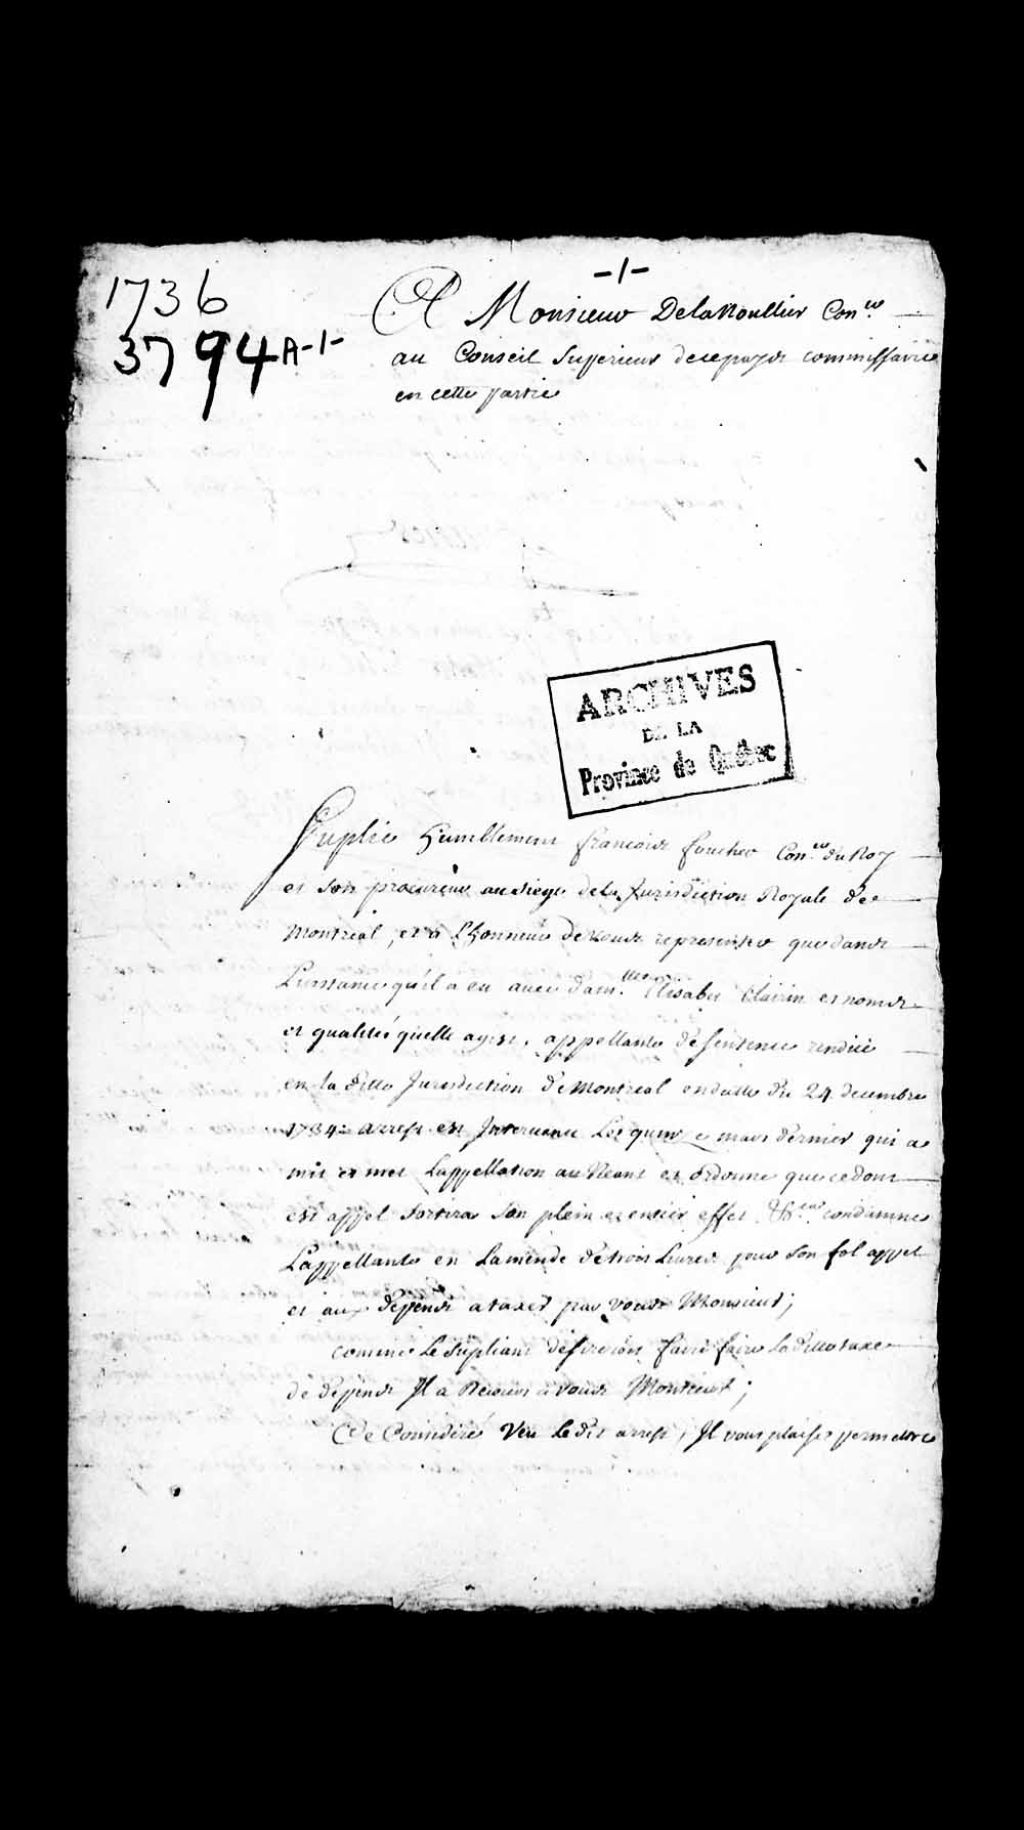 -1-
1736
3794 A-1-
A Monsieur Delanoullier Con.er
au Conseil Superieur de ce pays commissaire
en cette partie
ARCHIVES
DE LA
Province de Québec
Suplie humblement francois foucher Con.er du Roy
et son procureur au siege de la Jurisdiction Royale de
Montreal, et a l'honneur de vous representer que dans
L'instance qu'il a eu avec dam.lle Elisabet Clairin es noms
et qualités quelle agist, appellante de sentence rendüe
en la ditte Jurisdiction de Montreal en datte du 24 decembre
1734 arrest est Intervenu Le quinze mars dernier qui a
mis et met L'appellation au Neant et ordonne que ce dont
est appel sortira son plein et entier effet condamne
L'appellante en Lamende de trois Livres pour son fol appel
et aux depens a taxer par vous Monsieur;
comme Le supliant desireroit faire La ditte taxe
de depens Il a Recours a vous Monsieur;
Ce Consideré Veu Le dit arrest, Il vous plaise permettre